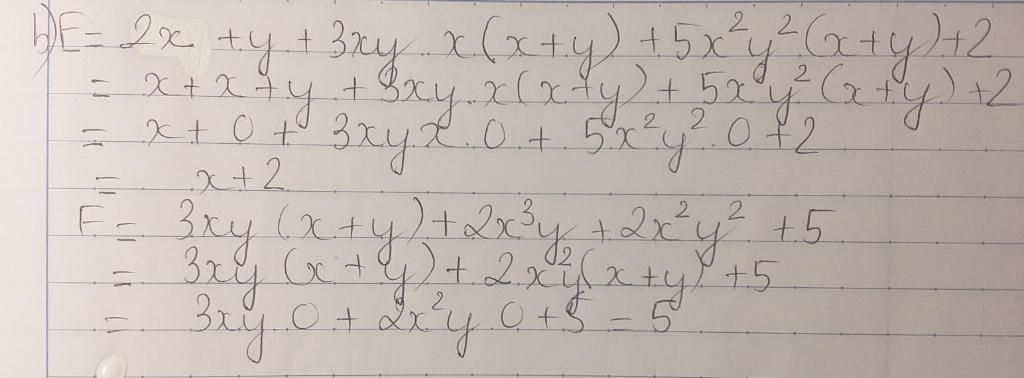 b) E = 2x + y + 3xy. x(x+y) + 5x²y²(x+y)+2
= x + x + y + 3xy.x(x+y) + 5xy²(x+y)+2
= x + 0 + 3xy.x.0 + 5x²y².0 + 2
= x+2
F = 3xy(x+y)+2x³y + 2x²y² + 5
= 3xy(x+y) + 2x²y(x+y) + 5
= 3xy.0 + 2x²y.0+5 = 5